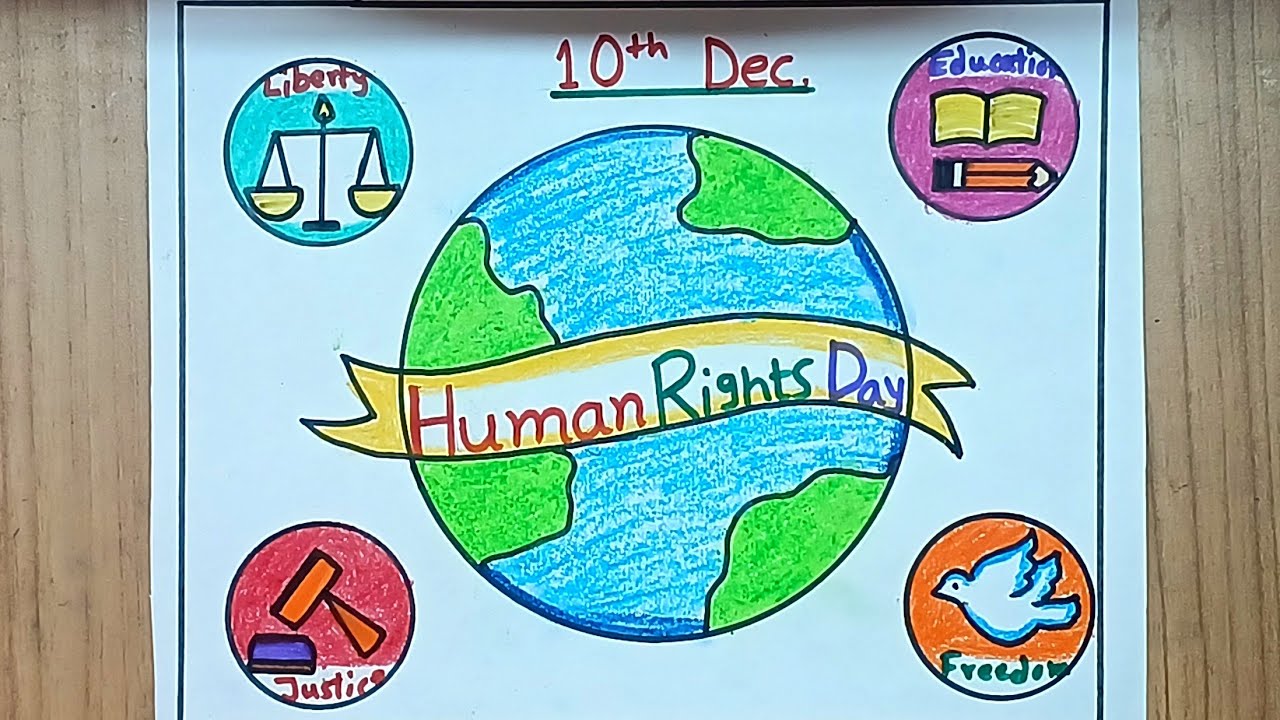 10th Dec.
Liberty
Education
Human Rights Day
Justice
Freedom